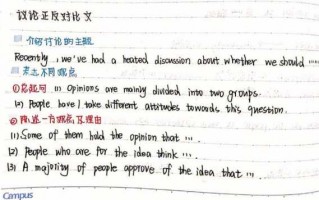 议论正反对比文
介绍讨论的主题
Recently, we've had a heated discussion about whether we should ...
表达不同观点
①总起句 (1) Opinions are mainly divided into two groups.
(2) People have / take different attitudes towards this question.
②陈述一方观点及理由
(1) Some of them hold the opinion that ...
(2) People who are for the idea think ...
(3) A majority of people approve of the idea that ...
Campus